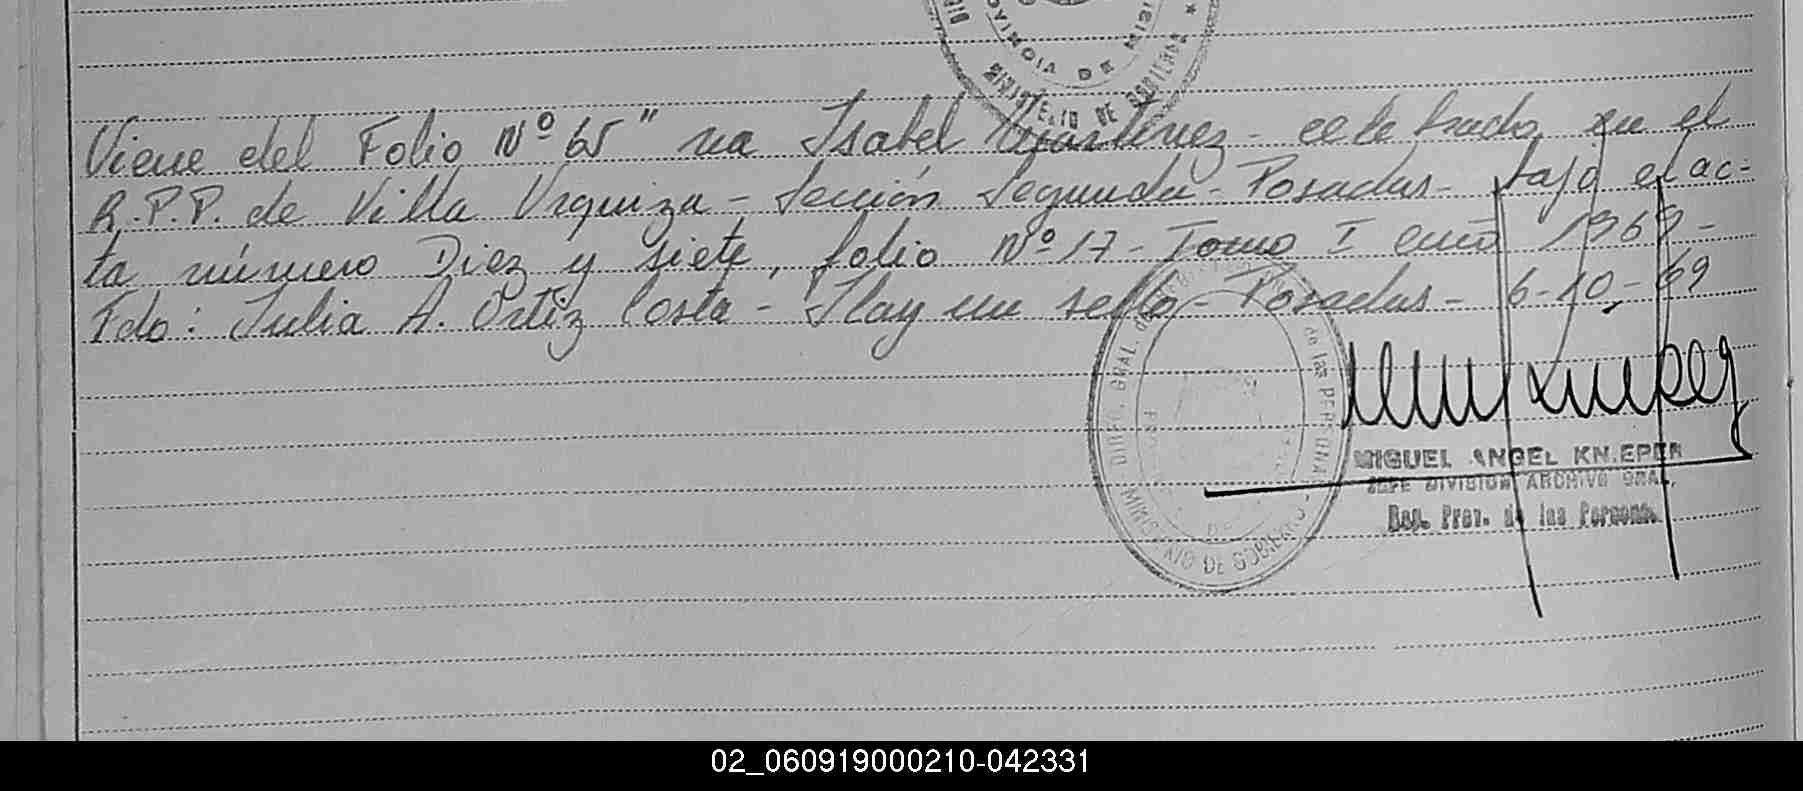 PROVINCIA DE MISIO
MINISTERIO DE
Viene del Folio Nº 65" na Isabel Martinez - celebrado en el
R.P.P. de Villa Urquiza - Sección Segunda - Posadas - bajo el ac-
ta número Diez y siete, folio Nº 17 - Tomo I año 1969 -
Fdo: Julia A. Ortiz Costa - Hay un sello - Posadas - 6-10-69
DIREC. GRAL. de las PERSONAS
MINISTERIO DE GOBIERNO
MIGUEL ANGEL KNIEPER
JEFE DIVISION ARCHIVO GRAL.
Reg. Prov. de las Personas
02_060919000210-042331